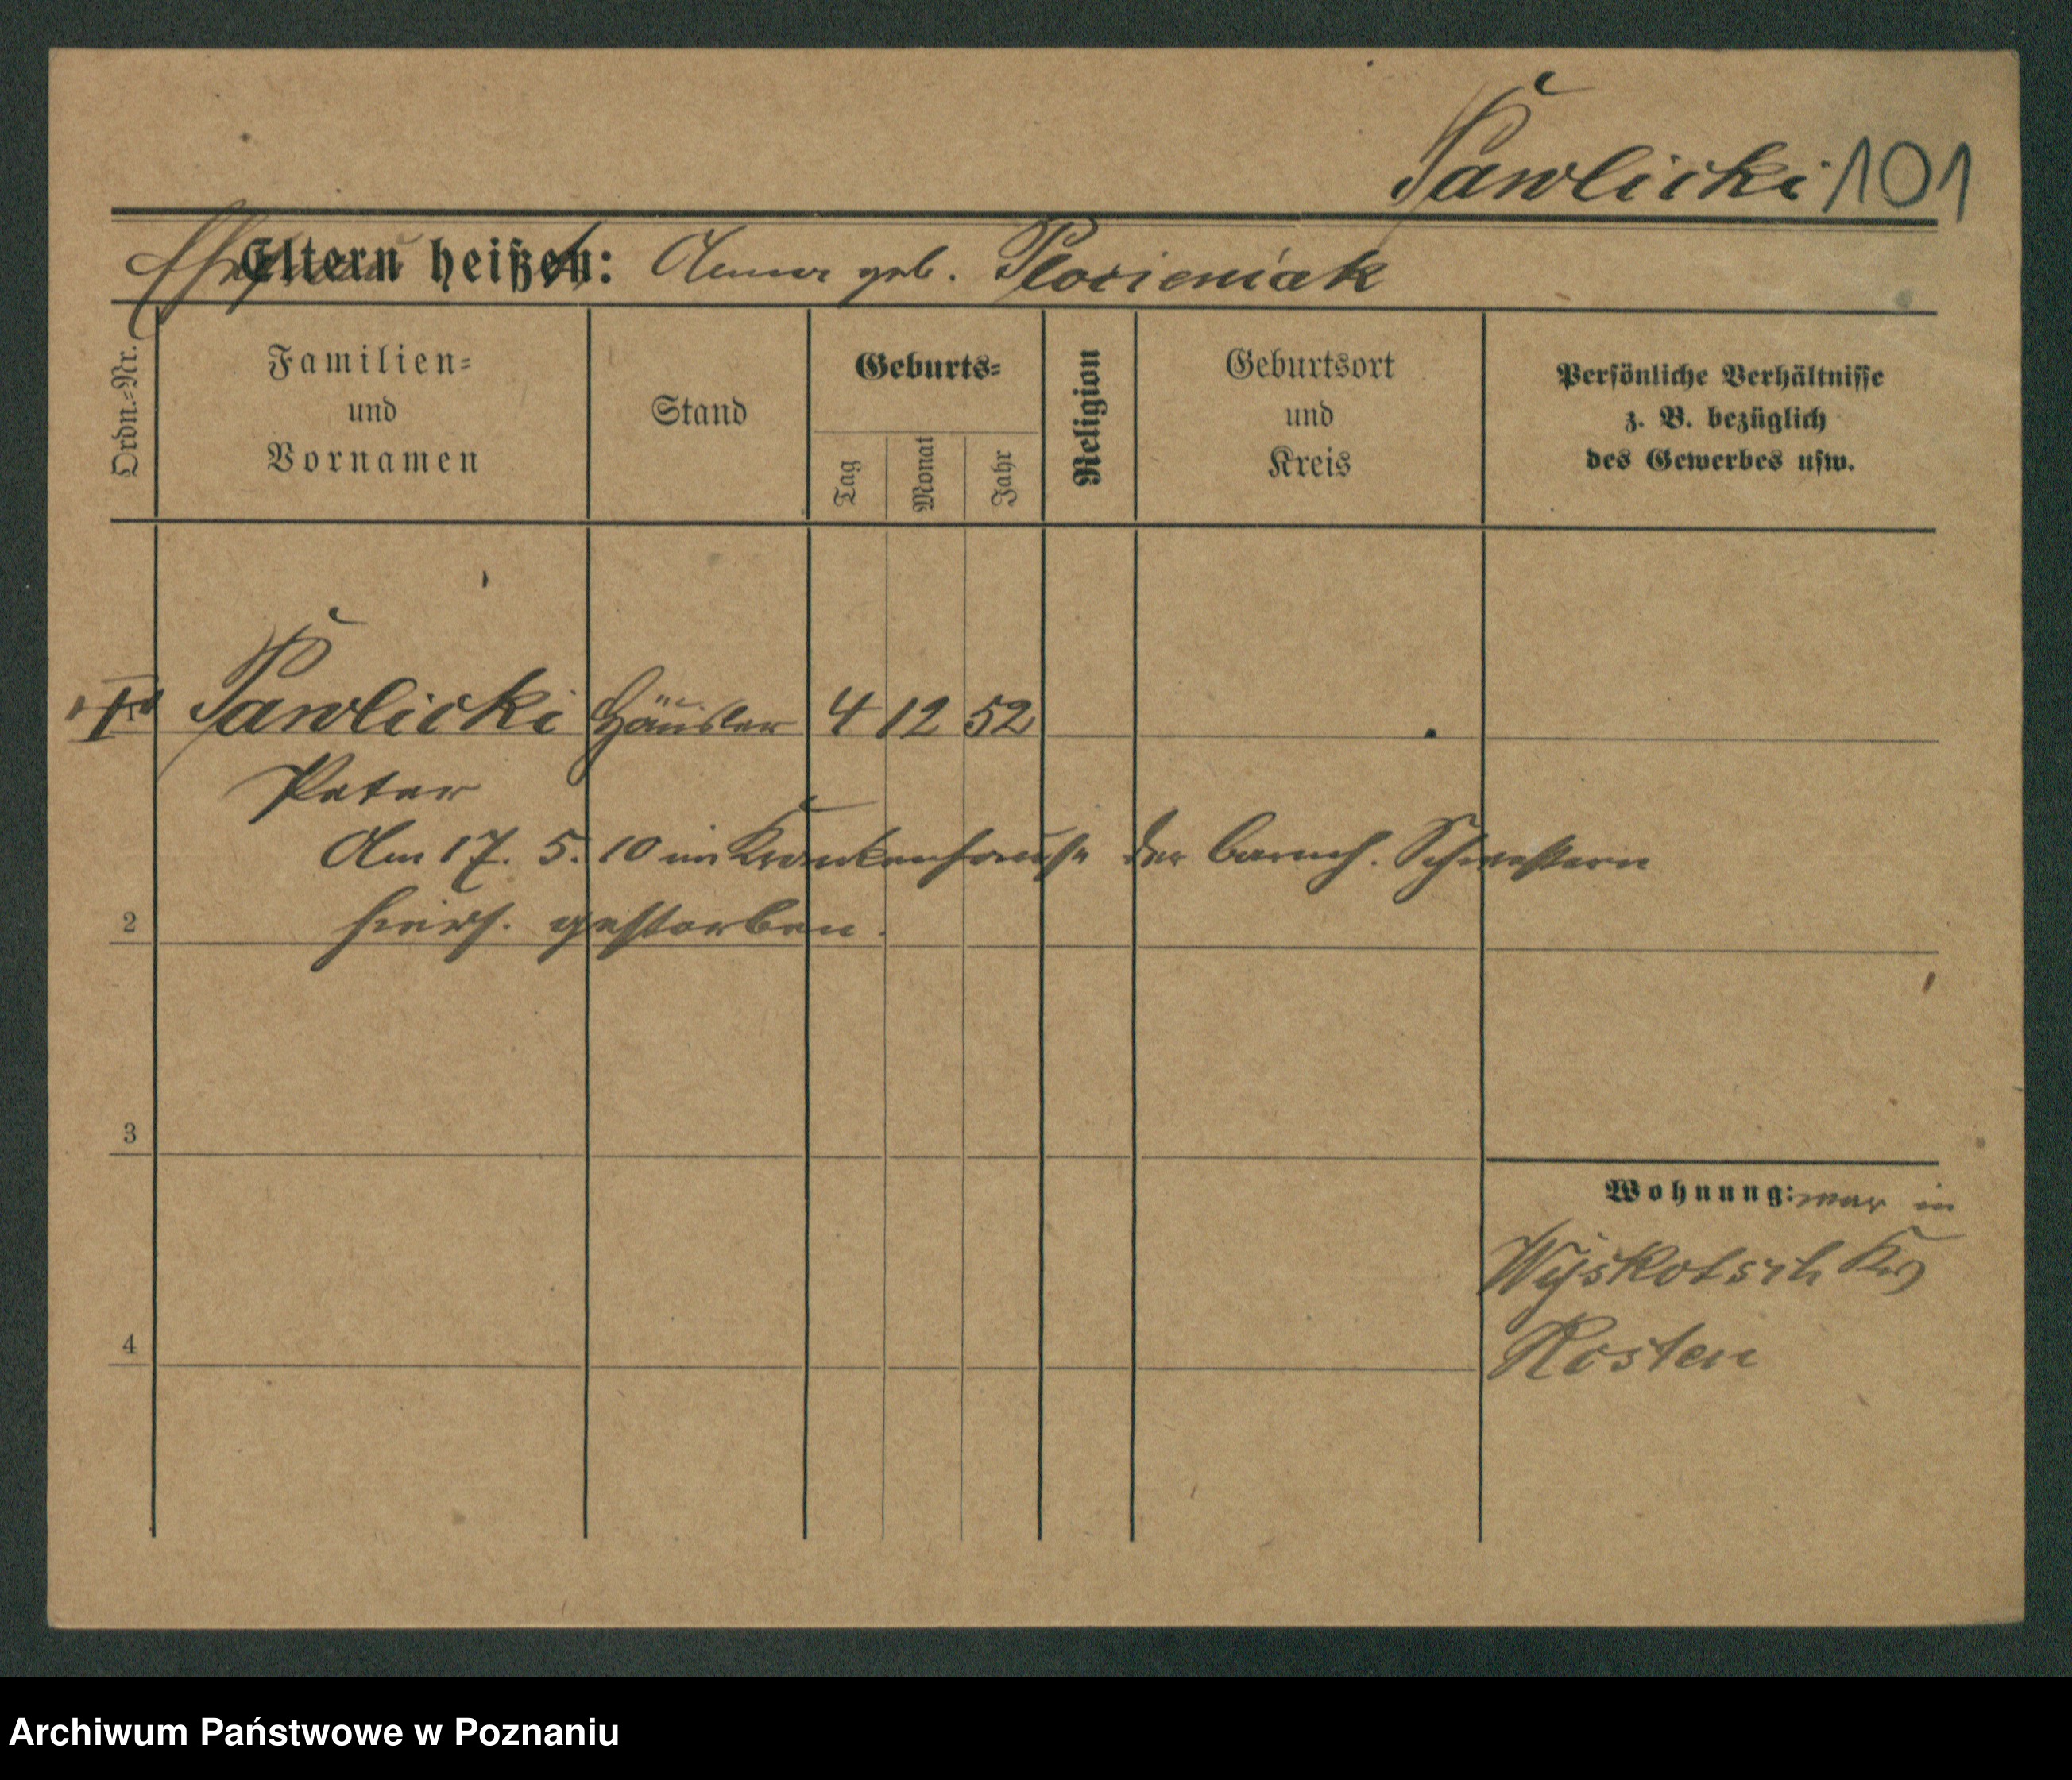 Pawlicki 101
Eltern heißen: Anna geb. Plocieniak
Ordn.-Nr.
Familien-
und
Vornamen
Stand
Geburts-
Tag
Monat
Jahr
Religion
Geburtsort
und
Kreis
Persönliche Verhältnisse
z. B. bezüglich
des Gewerbes usw.
I Pawlicki Häusler 4 12 52
Peter
Am 17. 5. 10 im Krankenhause der barmh. Schwestern
2 hiers. gestorben.
3
Wohnung: war in
Wyskotsch Krs
4 Kosten
Archiwum Państwowe w Poznaniu